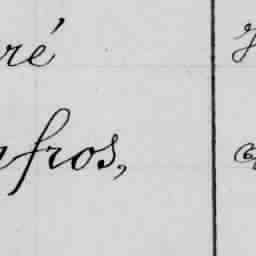 ré
afros,